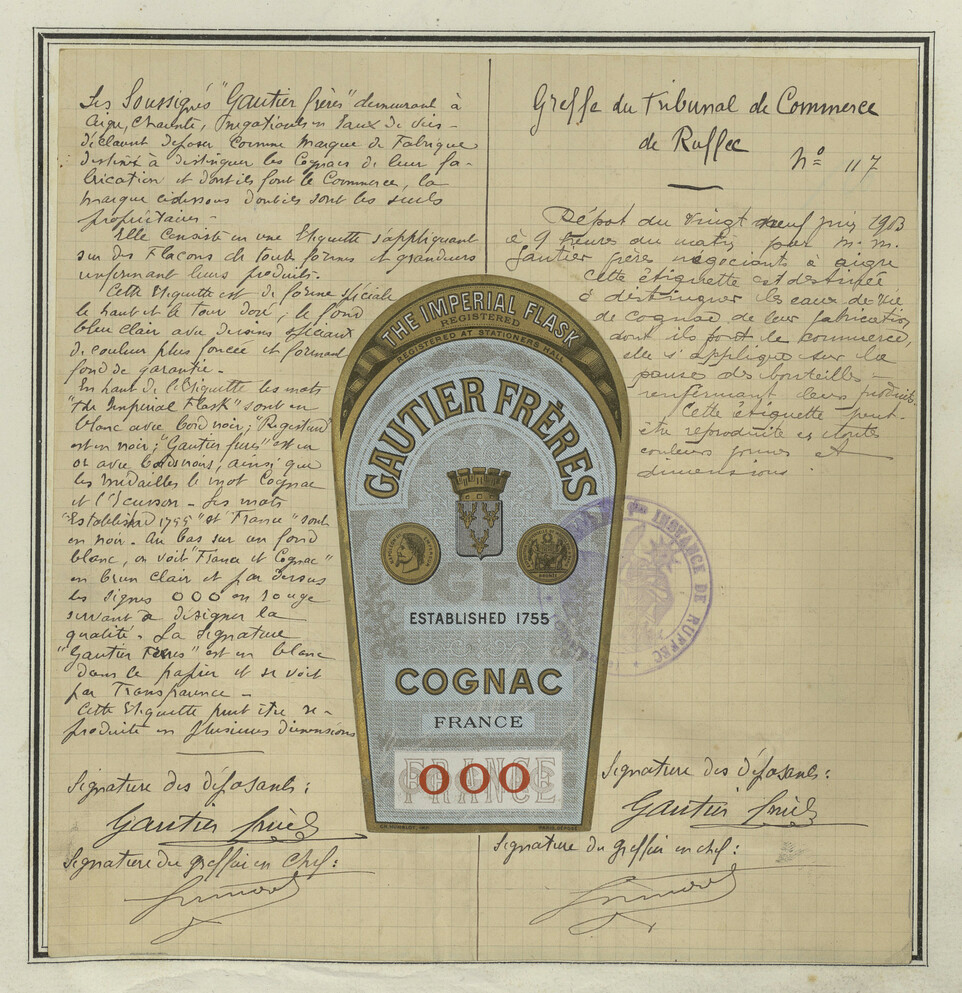 Les Soussignés "Gautier frères" demeurant à
Aigre, Charente, Négociants en Eaux de vies -
déclarent déposer comme marque de Fabrique
destinée à distinguer les Cognacs de leur fa-
brication et dont ils font le Commerce, la
marque ci dessous dont ils sont les seuls
propriétaires -
Elle consiste en une Etiquette s'appliquant
sur des Flacons de toute formes et grandeurs
renfermant leurs produits.
Cette Etiquette est de forme spéciale
le haut et le tour doré, le fond
bleu clair avec dessins spéciaux
de couleur plus foncée et formant
fond de garantie.
En haut de l'Etiquette les mots
"the Imperial Flask" sont en
blanc avec bord noir; "Registered
est en noir; "Gautier freres" est en
or avec bords noirs, ainsi que
les médailles le mot Cognac
et l'Ecusson - Les mots
"Established 1755" et "France" sont
en noir. Au bas sur un fond
blanc, on voit "France et Cognac"
en brun clair et par dessus
les signes OOO en rouge
servant à désigner la
qualité - La Signature
"Gautier Frères" est en blanc
dans le papier et se voit
par Transparence -
Cette Etiquette peut être re-
produite en plusieurs dimensions
Signature des déposants:
Gautier frères
Signature du greffier en chef:
Greffe du Tribunal de Commerce
de Ruffec
No 117
Dépôt du vingt neuf juin 1903
à 9 heures du matin par M.M.
Gautier frères négociants à aigre
Cette étiquette est destinée
à distinguer les eaux de vie
de cognac de leur fabrication
dont ils font le commerce,
elle s'applique sur la
panse des bouteilles -
renfermant leurs produits.
Cette étiquette peut-
être reproduite en toutes
couleurs formes et
dimensions.
Signature des déposants:
Gautier frères
Signature du greffier en chef:
THE IMPERIAL FLASK
REGISTERED
REGISTERED AT STATIONERS HALL
GAUTIER FRÈRES
GF
ESTABLISHED 1755
COGNAC
FRANCE
FRANCE
OOO
INSTANCE DE RUFFEC